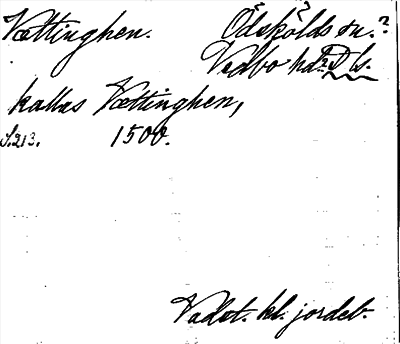 Vættinghen. Ödskölds sn.?
Vedbo hd? D ls.
kallas Vættinghen,
S. 213. 1500.
Vadst. kl. jordeb.